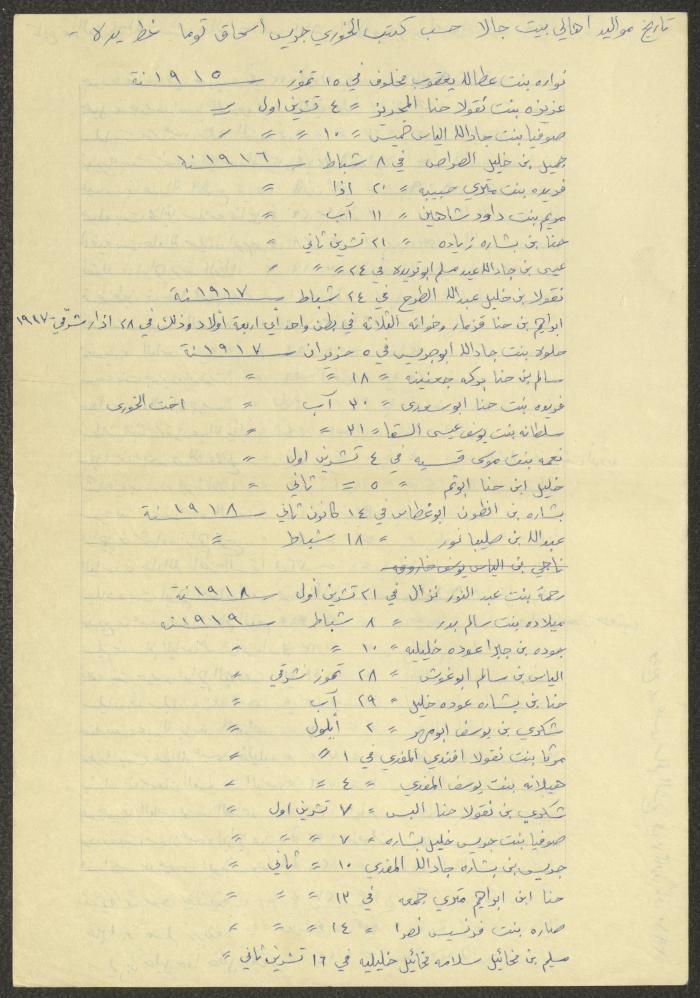 تاريخ مواليد اهالي بيت جالا حسب كتب الخوري جريس اسحاق توما خط يده -
نواره بنت عطالله يعقوب مخلوف في ١٥ تموز سنة ١٩١٥
عزيزه بنت نقولا حنا " ٤ تشرين اول "
صوفيا بنت جادالله الياس خميس " ١٠ " " "
جميل بن خليل الصراص في ٨ شباط سنة ١٩١٦
فريده بنت متري حبيبه " ٢٠ اذا "
مريم بنت داود شاهين " ١١ آب "
حنا بن بشاره زياده " ٢١ تشرين ثاني "
عيسى بن جادالله عيد مسلم في ٢٤ " " "
نقولا بن خليل عبدالله الطوح في ٢٤ شباط سنة ١٩١٧
ابراهيم بن حنا قزمار وخوانه الثلاثه في بطن واحد أي اربعة أولاد وذلك في ٢٨ اذار شرقي ١٩١٧
حلوه بنت جادالله ابوجريس في ٥ حزيران سنة ١٩١٧
سالم بن حنا بركه جعنينه " ١٨ " "
فريده بنت حنا ابوسعدى " ٣٠ آب " اخت الخورى
سلطانه بنت يوسف عيسى السقا " ٣١ " "
نعمه بنت موسى قسيه في ٤ تشرين اول "
خليل ابن حنا ابوتم " ٥ " ثاني "
بشاره بن انطون ابوغطاس في ١٤ كانون ثاني سنة ١٩١٨
عبدالله بن صليبا نور " ١٨ شباط "
ناجي بن الياس يوسف خاروفه
رحمة بنت عبد النور نزال في ٢١ تشرين أول سنة ١٩١٨
ميلاده بنت سالم بدر " ٨ شباط سنة ١٩١٩
عوده بن جابرا عوده خليليه " ١٠ " "
الياس بن سالم ابوغوش " ٢٨ تموز شرقي "
حنا بن بشاره عوده خليل " ٢٩ آب "
شكري بن يوسف ابومهر " ٢ أيلول "
مرتا بنت نقولا افندي المغدي في ١ " "
هيلانه بنت يوسف المغدي " ٤ " "
شكري بن نقولا حنا البس " ٧ تشرين اول "
صوفيا بنت جريس خليل بشاره " ٧ " " "
جريس بن بشاره جادالله المغدي ١٠ " ثاني "
حنا ابن ابراهيم متري جمعه في ١٣ " " "
ساره بنت فرنسيس نصرا " ١٤ " " "
مسلم بن مخائيل سلامه مخائيل خليليه في ١٦ تشرين ثاني "